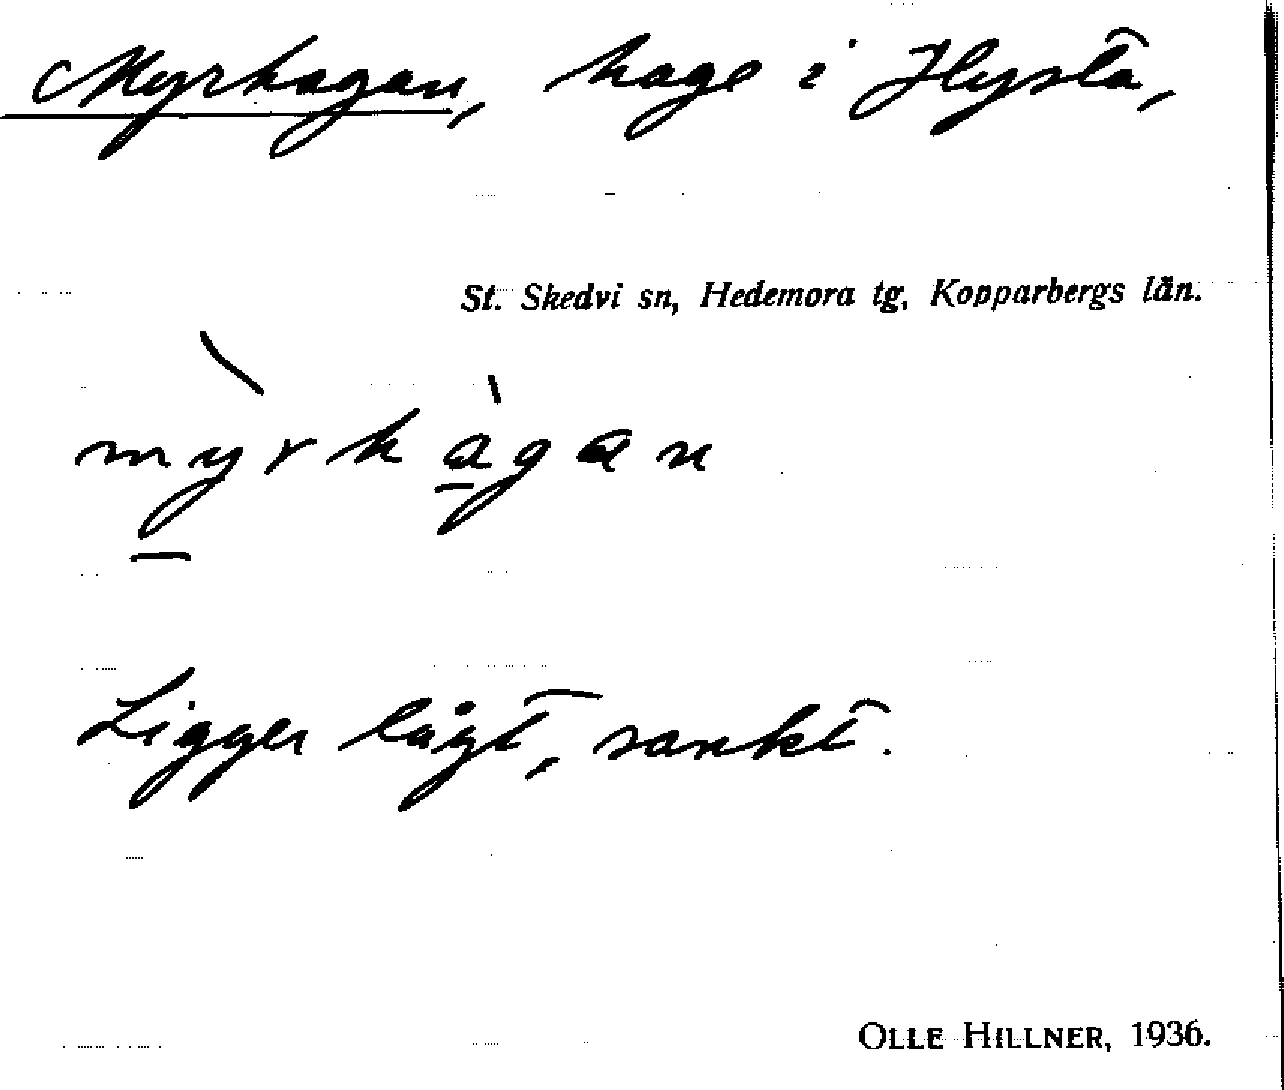 Myrhagan, hage i Hysta,
St. Skedvi sn, Hedemora tg, Kopparbergs län.
mỳ̠rhà̠gan
Ligger lågt, sankt.
OLLE HILLNER, 1936.